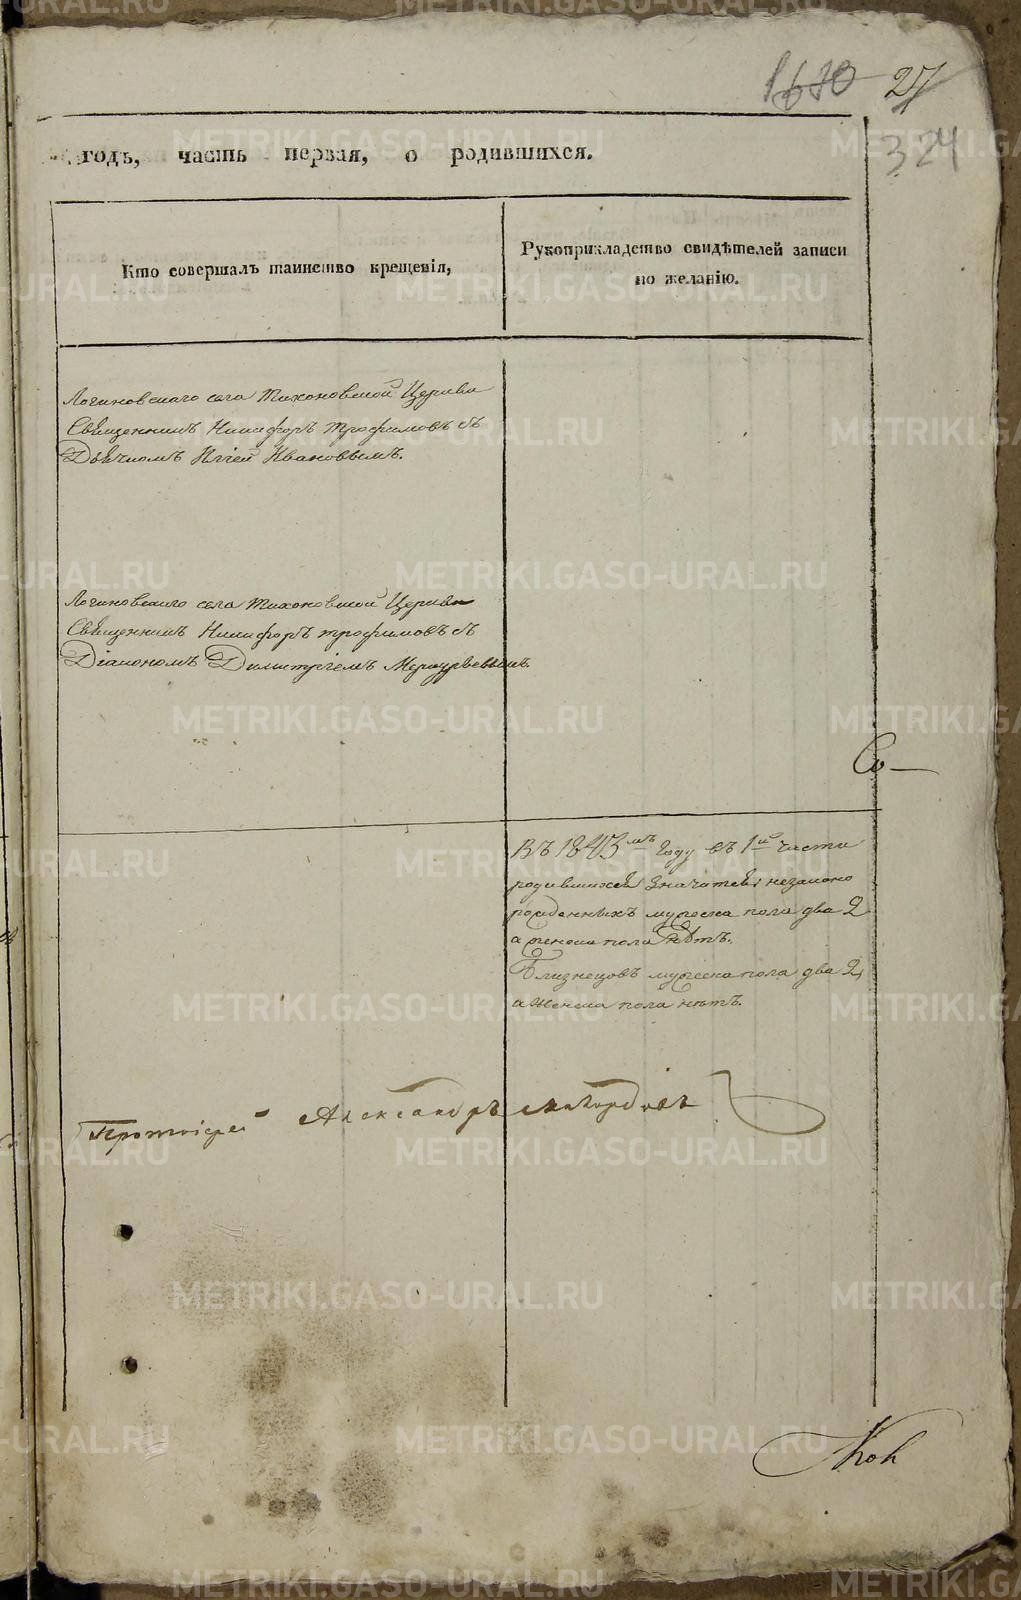 1670 27
324
годъ, часть первая, о родившихся.
Кто совершалъ таинство крещенія,
Рукоприкладство свидѣтелей записи
по желанію.
Логиновскаго села Тихоновской Церкви
Священникъ Никифоръ Трофимовъ съ
Дьячкомъ Ивановымъ.
Логиновскаго села Тихоновской Церкви
Священникъ Никифоръ Трофимовъ съ
Діакономъ Димитріемъ Меркурьевымъ.
Со
Въ 1843мъ году въ 1й части
родившихся значится: незаконо
рожденныхъ мужеска пола два 2
а женска пола нѣтъ.
Близнецовъ мужеска пола два 2,
а женска пола нѣтъ.
Протоіерей Александръ
METRIKI.GASO-URAL.RU